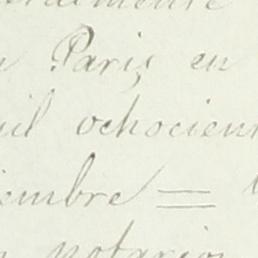 Paris en
mil ochocient
iembre =
notarios